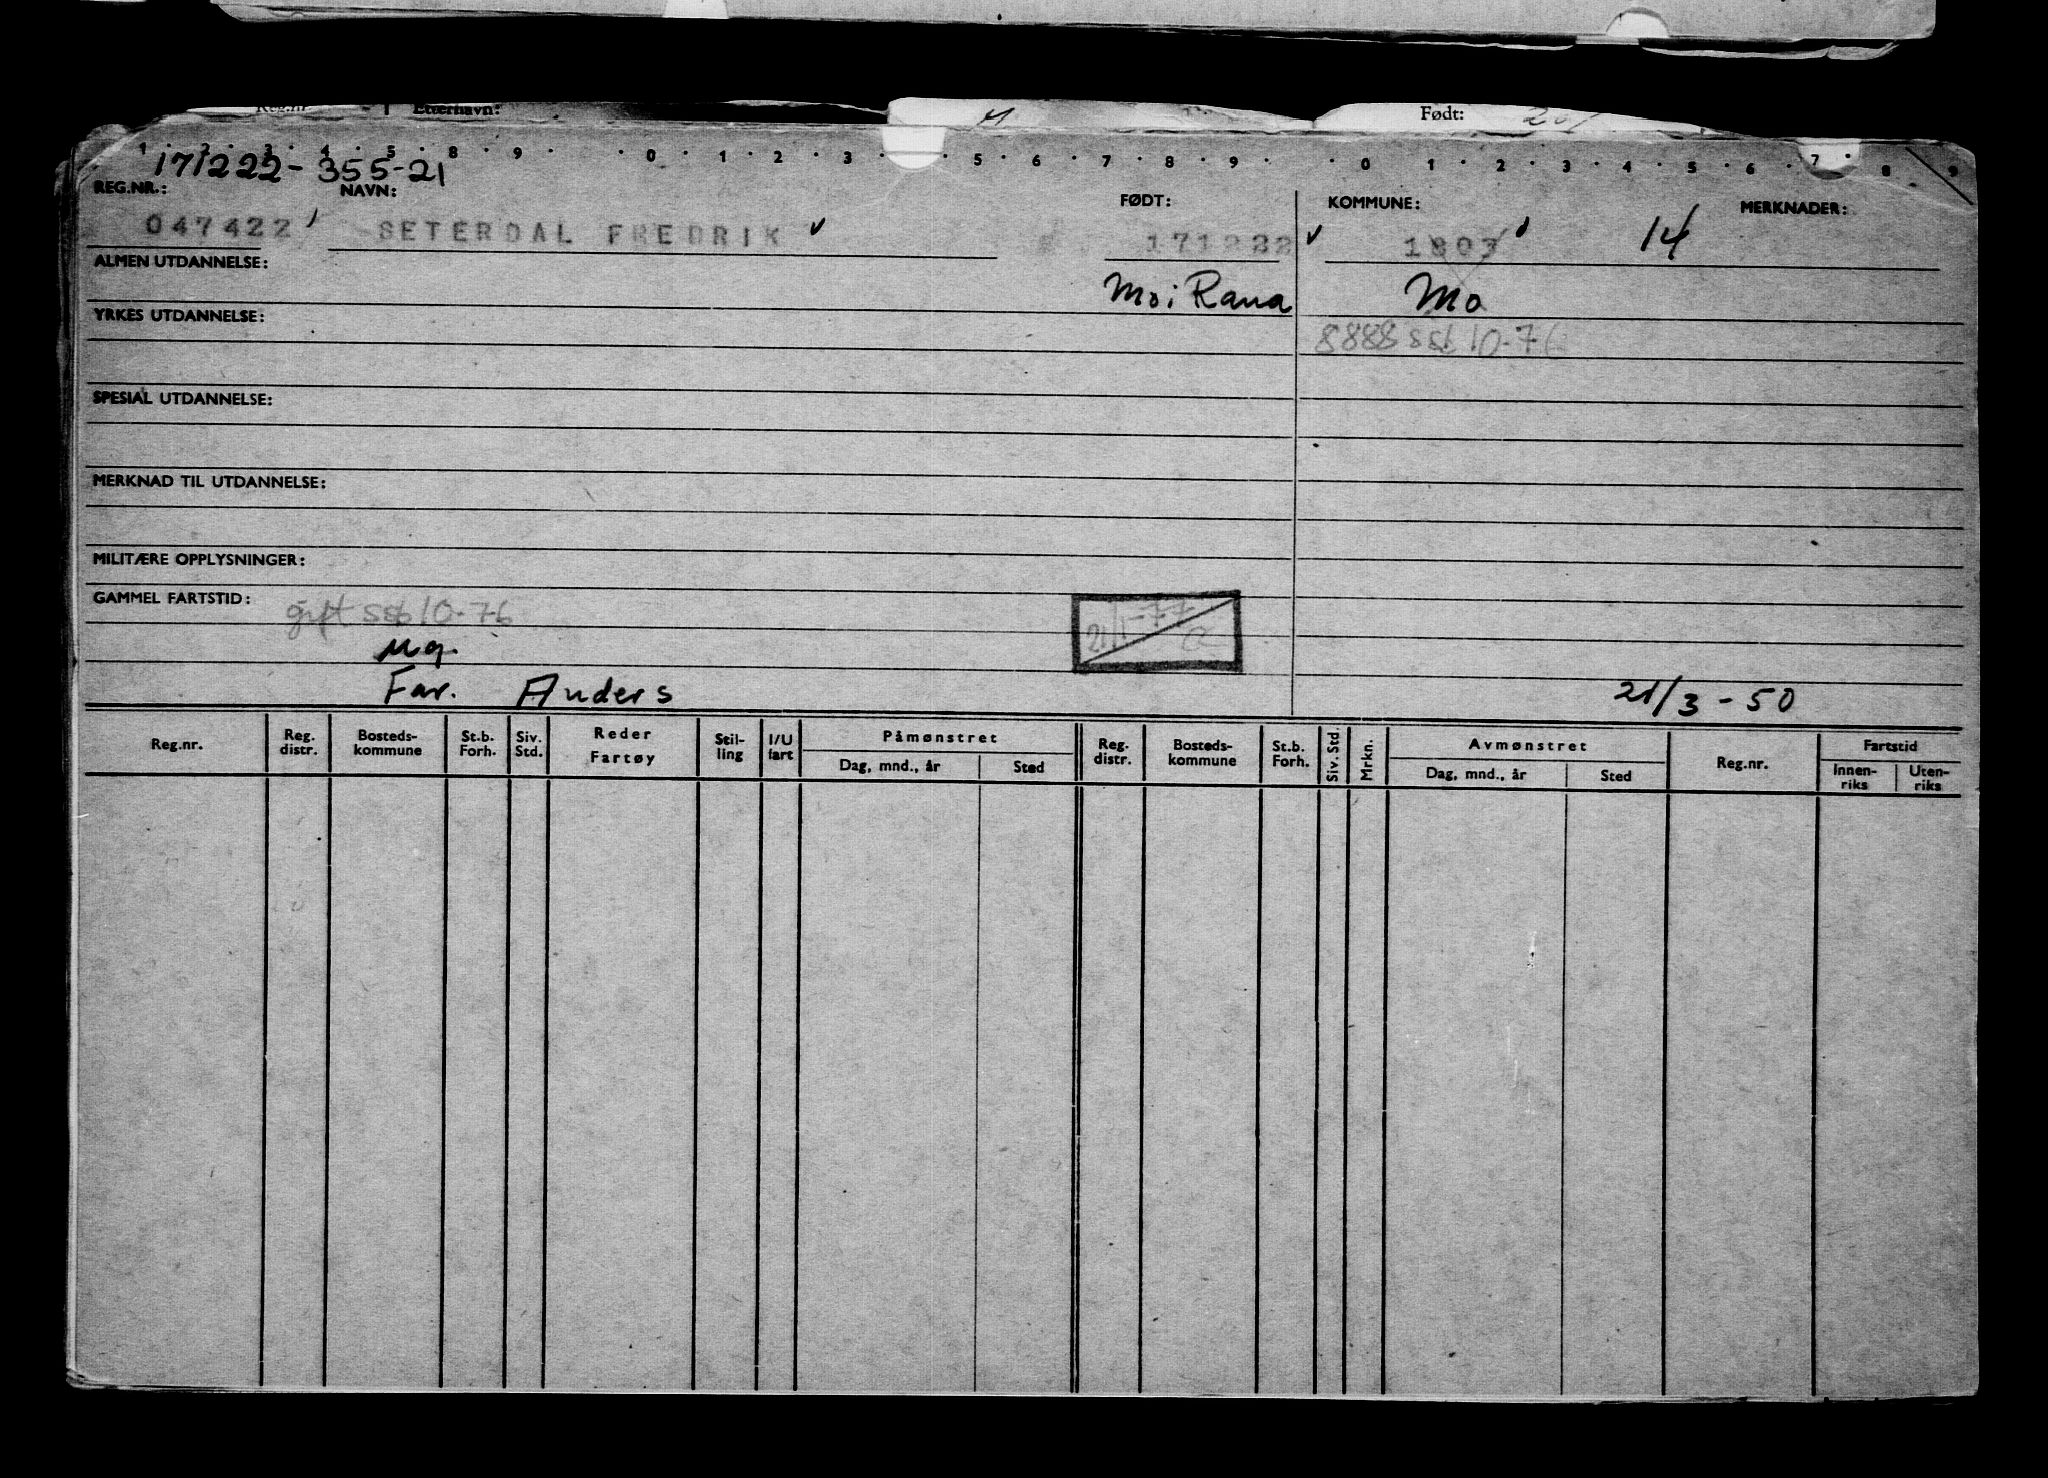 Født:
1 2 3 4 5 8 9 0 1 2 3 5 6 7 8 9 0 1 2 3 4 5 6 7 8 9
171222-355-21
REG.NR.: NAVN: FØDT: KOMMUNE: MERKNADER:
047422 SETERDAL FREDRIK 171222 1803 14
ALMEN UTDANNELSE:
Mo i Rana Mo
YRKES UTDANNELSE:
8888 ssb 10-76
SPESIAL UTDANNELSE:
MERKNAD TIL UTDANNELSE:
MILITÆRE OPPLYSNINGER:
GAMMEL FARTSTID:
gift ssb 10-76
21/1-77
Far. Anders 21/3-50
Reg.nr. Reg. distr. Bosteds- kommune St.b. Forh. Siv. Std. Reder Fartøy Stil- ling I/U fart Påmønstret Dag, mnd., år Sted Reg. distr. Bosteds- kommune St.b. Forh. Siv. Std. Mrkn. Avmønstret Dag, mnd., år Sted Reg.nr. Fartstid Innen- riks Uten- riks